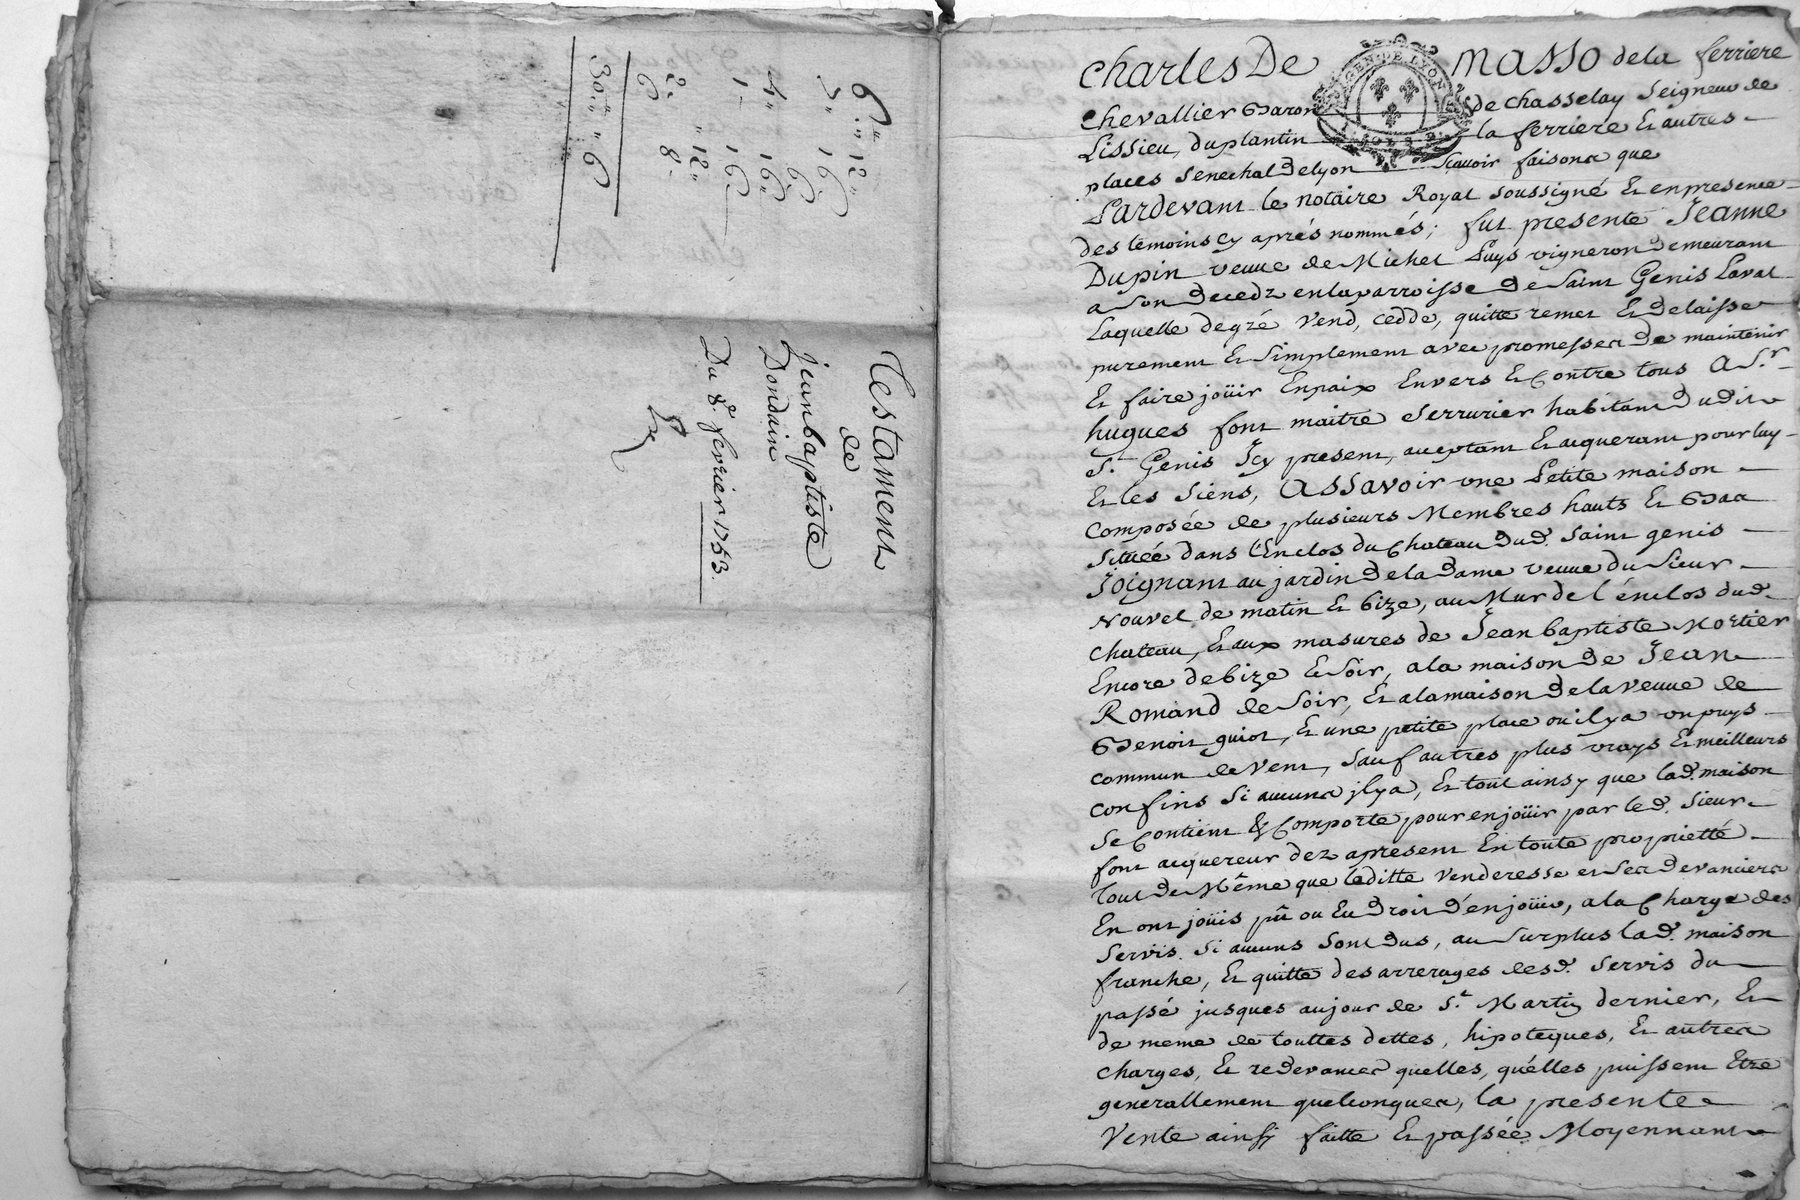 6." 12."
3." 16."
6
4." 16."
1 - 16
" 12"
2. 8.
6
30." " 6
Testament
de
jeanbaptiste
Dondain
Du 8.e fevrier 1753.
GEN. DE LYON
charles De Masso dela ferriere
chevallier Baron de chasselay Seigneur de
Lissieu, duplantin la ferriere et autres
places senechal delyon Scavoir faisons que
Pardevant le notaire Royal soussigné et enpresence
des temoins cy aprés nommés; fut presente Jeanne
Dupin veuve de Michel Puys vigneron demeurant
a son decedz enlaparroisse de Saint Genis Laval
Laquelle degré vend, cedde, quitte remet et delaisse
purement et simplement avec promesses de maintenir
et faire joüir enpaix envers et contre tous a Sr.
hugues font maitre serrurier habitant dudit
St. Genis Jcy present, aceptant et aquerant pour luy
et les siens, assavoir une Petite maison
composée de plusieurs Membres hauts et Bas
Située dans l'Enclos du Chateau dud. Saint genis
Joignant au jardin de la dame veuve du sieur
Nouvel de matin et bize, au Mur de l'énclos dud.
chateau, et aux masures de Jean baptiste Mortier
Encore debize et soir, ala maison de Jean
Romand de soir, et alamaison dela veuve de
Benoit guiot, et une petite place ou ilya un puys
commun de vent, sauf autres plus vrays et meilleurs
confins si aucuns jlya, et tout ainsy que lad. maison
se contient & comporte pour enjoüir par led. sieur
font acquereur dez apresent en toute proprietté
tout de Même que laditte venderesse et ses devanciers
En ont joüis pû ou eu droit d'enjoüir, ala Charge des
servis si aucuns sont dus, au surplus lad. maison
franche, et quitte des arrerages desd. servis du
passé jusques aujour de St. Martin dernier, et
de meme de touttes dettes, hipoteques, et autres
charges, et redevances quelles, quélles puissent Etre
generallement quelconques, la presente
vente ainsy faitte et passée Moyennant